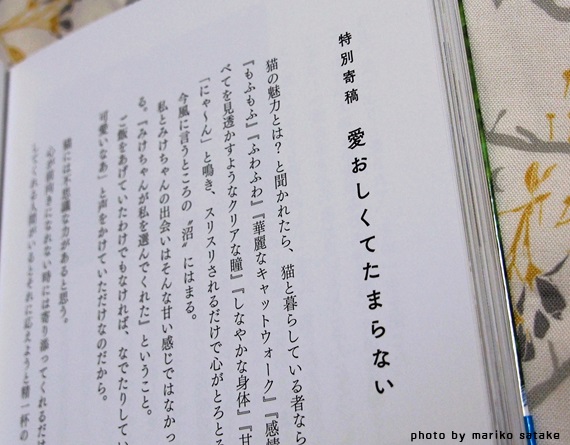 特別寄稿 愛おしくてたまらない
猫の魅力とは?と聞かれたら、猫と暮らしている者なら
『もふもふ』『ふわふわ』『華麗なキャットウォーク』『感情
べてを見透かすようなクリアな瞳』『しなやかな身体』『甘
「にゃ〜ん」と鳴き、スリスリされるだけで心がとろとろ
今風に言うところの〝沼〟にはまる。
私とみけちゃんの出会いはそんな甘い感じではなかっ
る。『みけちゃんが私を選んでくれた』ということ。
ご飯をあげていたわけでもなければ、なでたりしてい
可愛いなあ」と声をかけていただけなのだから。
猫には不思議な力があると思う。
心が前向きになれない時には寄り添ってくれるだけ
してくれる人間がいるとそれに応えようと精一杯の
photo by mariko satake